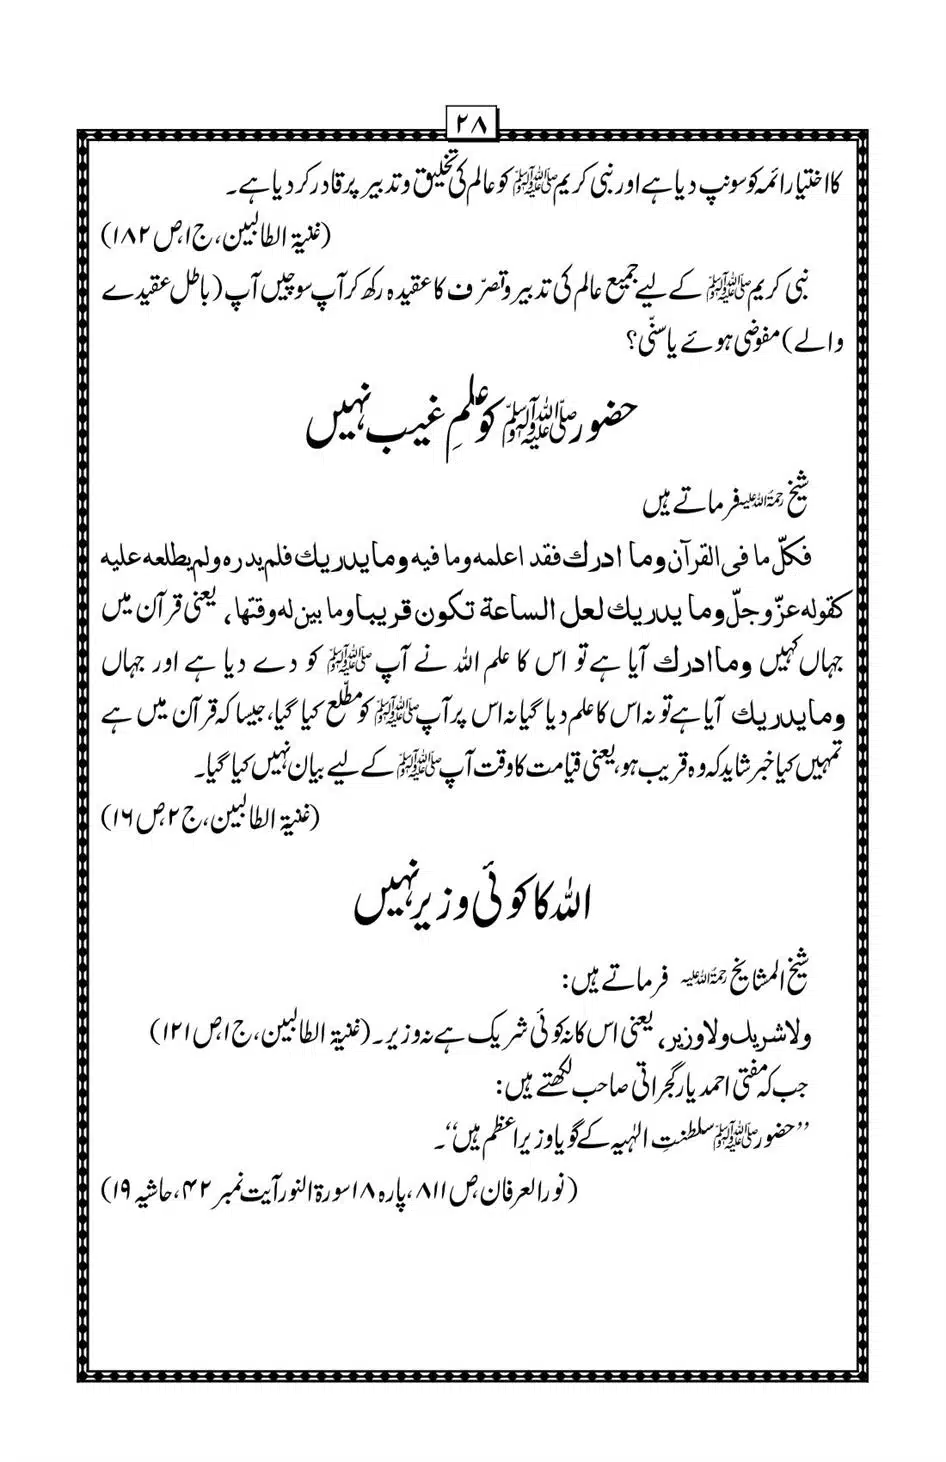 ۲۸
کا اختیار ائمہ کو سونپ دیا ہے اور نبی کریم ﷺ کو عالم کی تخلیق و تدبیر پر قادر کر دیا ہے۔
(غنیۃ الطالبین، ج ۱، ص ۱۸۲)
نبی کریم ﷺ کے لیے جمیع عالم کی تدبیر و تصرّف کا عقیدہ رکھ کر آپ سوچیں آپ (باطل عقیدے
والے) مفوضی ہوئے یا سنّی؟
حضور ﷺ کو علمِ غیب نہیں
شیخ رحمۃ اللہ علیہ فرماتے ہیں
فکلّ ما فی القرآن وما ادرك فقد اعلمه وما فیه وما یدریك فلم یدره ولم یطلعه علیه
کقوله عزّ وجلّ وما یدریك لعل الساعة تکون قریبا وما بین له وقتها، یعنی قرآن میں
جہاں کہیں وما ادرك آیا ہے تو اس کا علم اللہ نے آپ ﷺ کو دے دیا ہے اور جہاں
وما یدریك آیا ہے تو نہ اس کا علم دیا گیا نہ اس پر آپ ﷺ کو مطّلع کیا گیا، جیسا کہ قرآن میں ہے
تمہیں کیا خبر شاید کہ وہ قریب ہو، یعنی قیامت کا وقت آپ ﷺ کے لیے بیان نہیں کیا گیا۔
(غنیۃ الطالبین، ج ۲، ص ۱۶)
اللہ کا کوئی وزیر نہیں
شیخ المشایخ رحمۃ اللہ علیہ فرماتے ہیں:
ولا شریك ولا وزیر، یعنی اس کا نہ کوئی شریک ہے نہ وزیر۔ (غنیۃ الطالبین، ج ۱، ص ۱۲۱)
جب کہ مفتی احمد یار گجراتی صاحب لکھتے ہیں:
’’حضور ﷺ سلطنتِ الٰہیہ کے گویا وزیر اعظم ہیں‘‘۔
(نور العرفان، ص ۸۱۱، پارہ ۱۸ سورۃ النور آیت نمبر ۴۲، حاشیہ ۱۹)